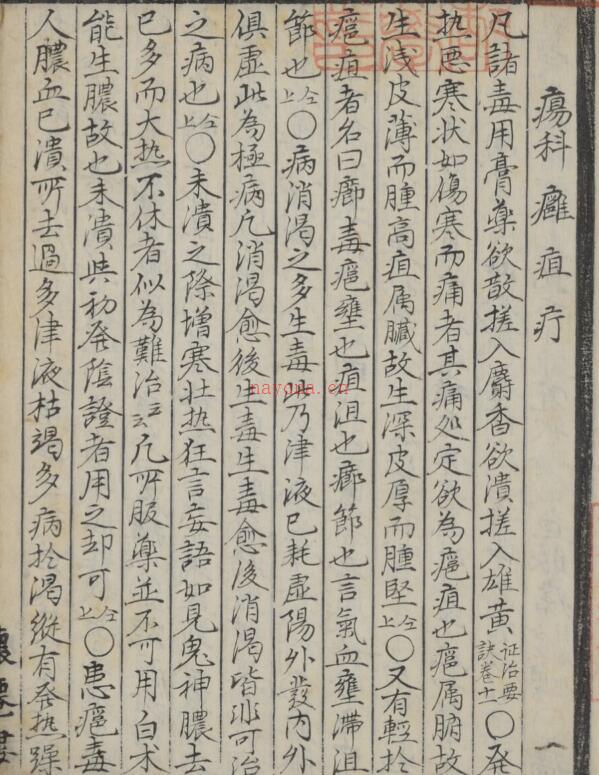 瘍科 癰疽疔
凡諸毒用膏藥欲散搓入麝香欲潰搓入雄黃證治要訣卷十一〇発
热悪寒状如傷寒而痛者其痛処定欲為癰疽也癰属腑故
生浅皮薄而腫高疽属臓故生深皮厚而腫堅仝上〇又有軽於
癰疽者名曰癤毒癰壅也疽沮也癤節也言氣血壅滞沮
節也仝上〇病消渇之多生毒此乃津液已耗虚陽外發内外
俱虚此為極病凡消渇愈後生毒生毒愈後消渇皆非可治
之病也仝上〇未潰之際増寒壮热狂言妄語如見鬼神膿去
已多而大热不休者似為難治云云凡所服薬並不可用白术
能生膿故也未潰与初発陰證者用之却可仝上〇患癰毒
人膿血已潰所去過多津液枯竭多病於渇縦有発热躁
nayona.cn